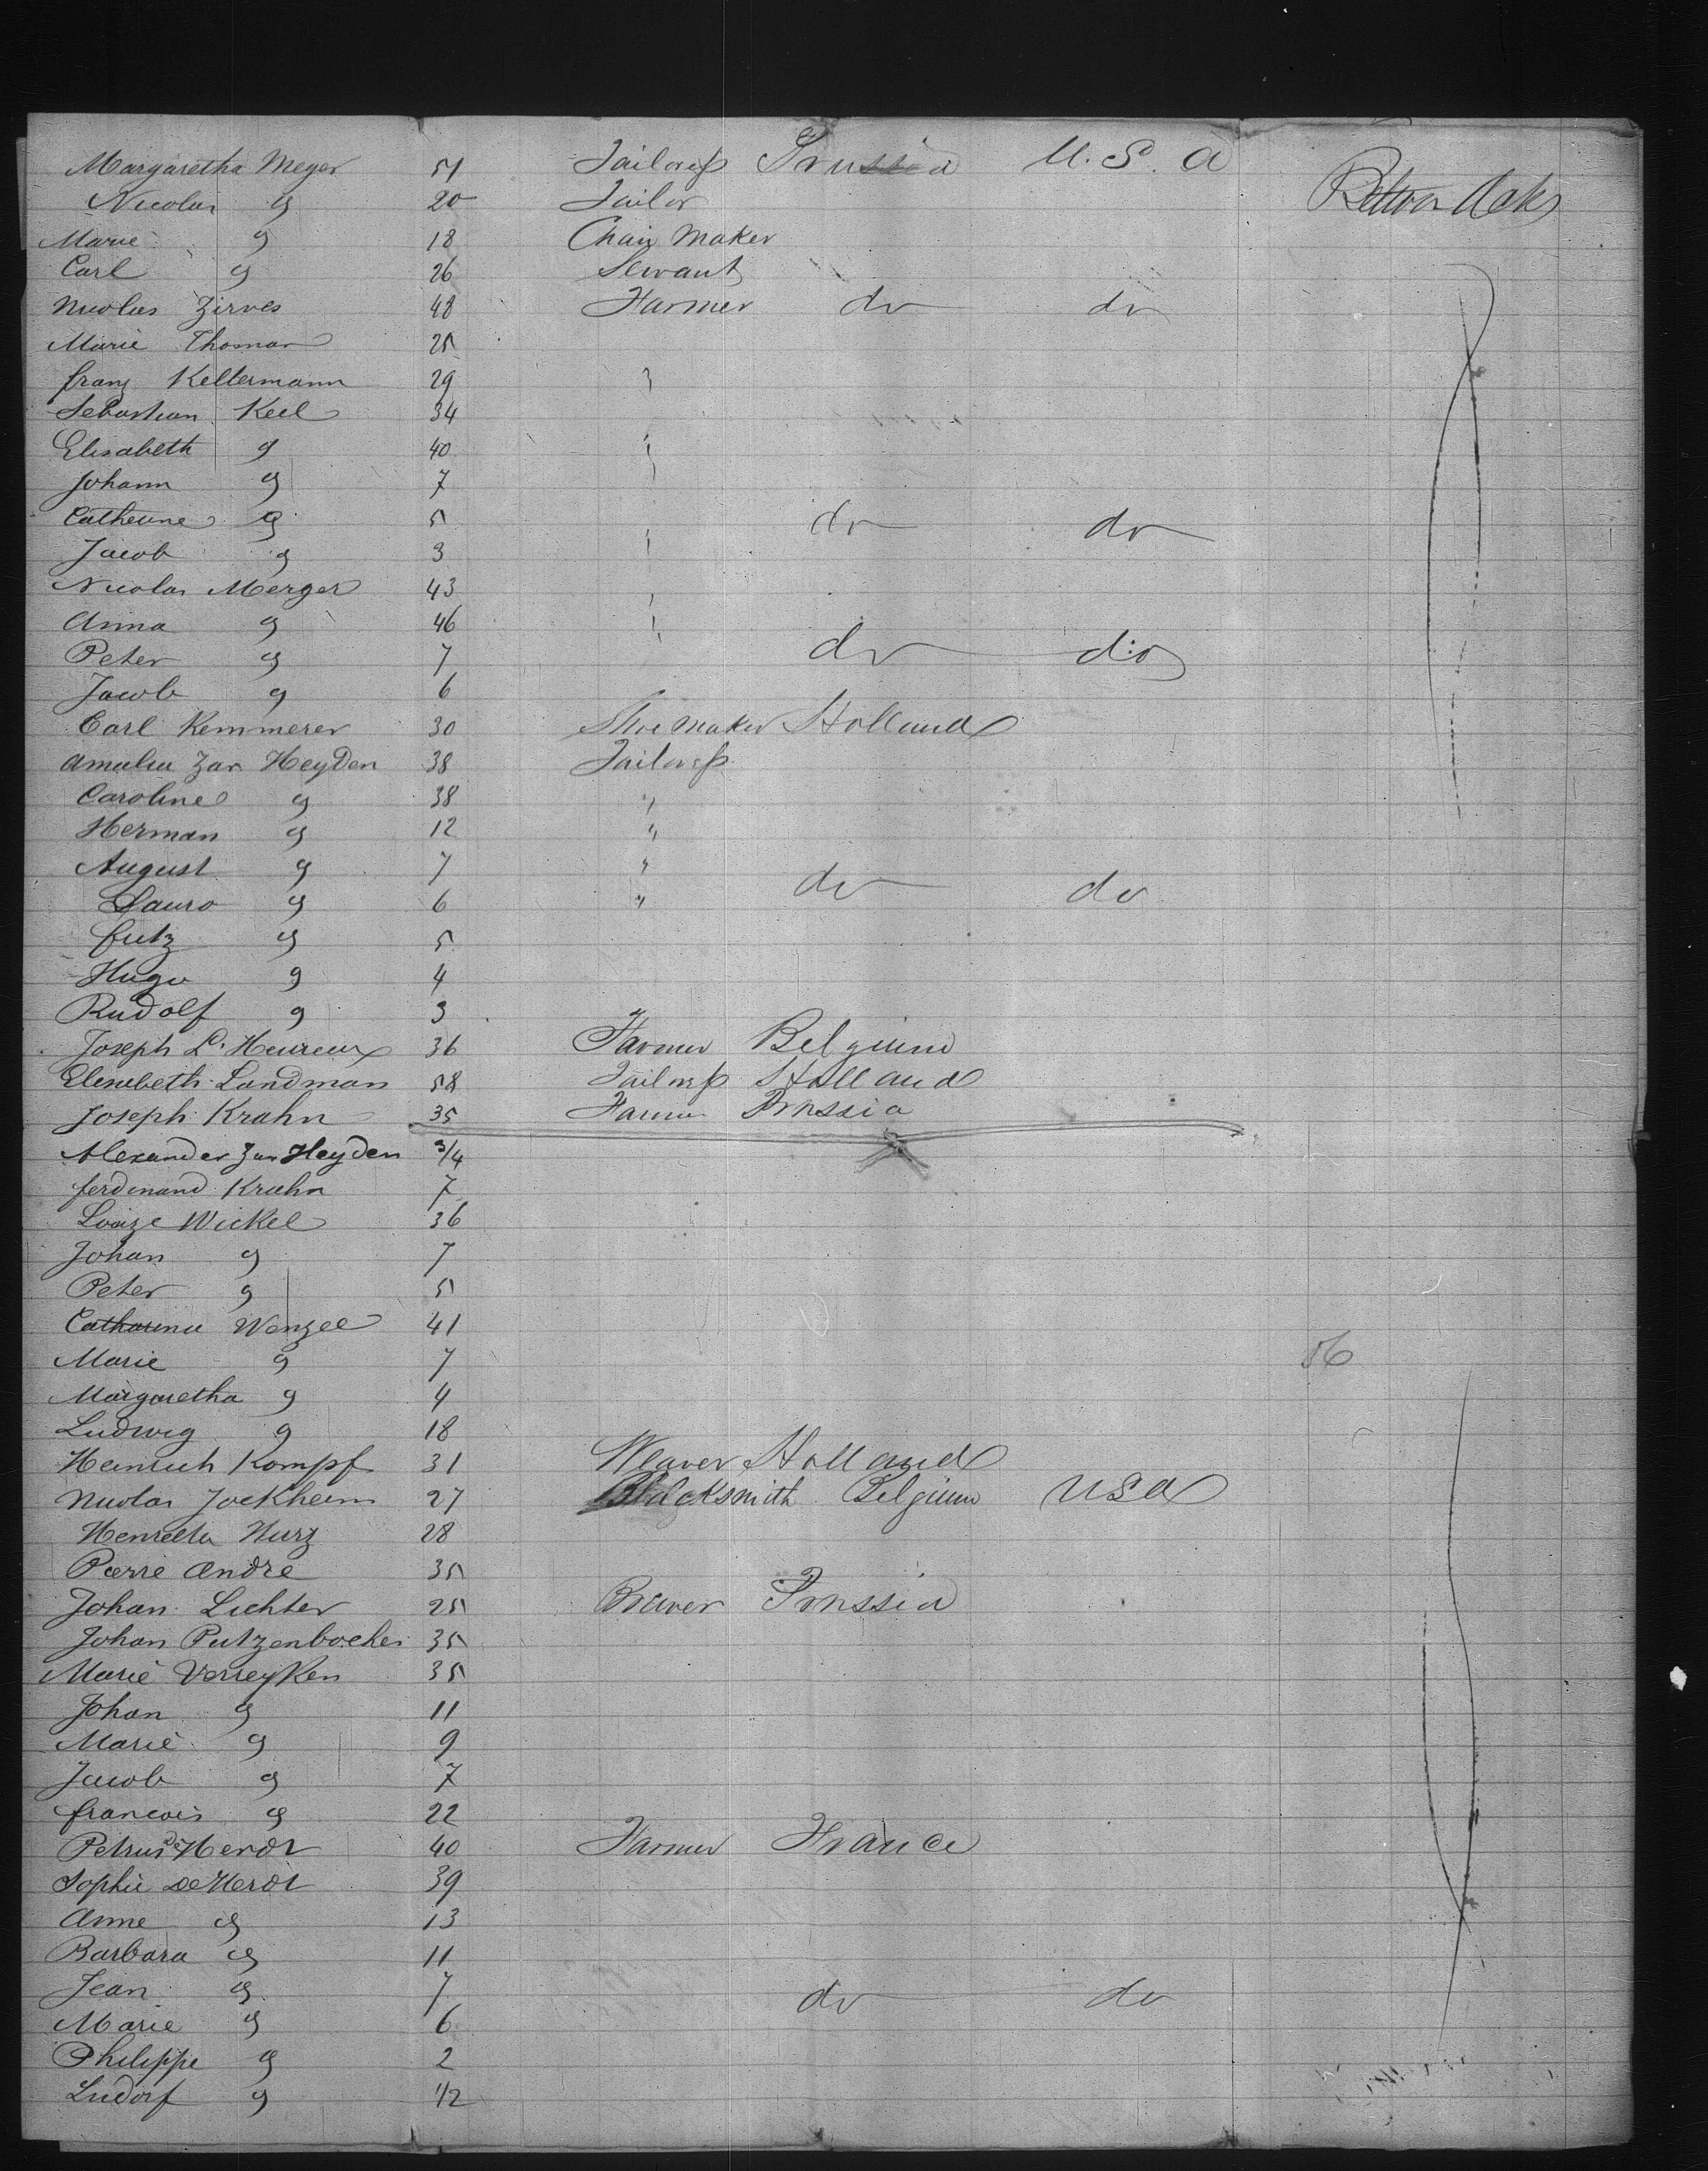 Margaretha Meyer 51 Tailoress Prussia U.S.A
Nicolas " 20 Tailor
Marie " 18 Chair Maker
Carl " 26 Servant
Nicolas Zirves 48 Farmer do do
Marie Thomas 25
Franz Kellermann 29 "
Sebastian Keil 34
Elisabeth " 40 "
Johann " 7 "
Catherine " 5 do do
Jacob " 3 "
Nicolas Merger 43
Anna " 46 "
Peter " 7 do do
Jacob " 6
Carl Kemmerer 30 Shoemaker Holland
Amalia Zur Heyden 38 Tailoress
Caroline " 38 "
Herman " 12 "
August " 7 "
Laura " 6 " do do
Fritz " 5
Hugo " 4
Rudolf " 3
Joseph L'Heureux 36 Farmer Belgium
Elesabeth Landman 58 Tailoress Holland
Joseph Krahn 35 Farmer Prussia
Alexander Zur Heyden 3/4
Ferdinand Krahn 7
Louize Wickel 36
Johan " 7
Peter " 5
Catharina Wenzel 41
Marie " 7 56
Margaretha " 4
Ludwig " 18
Heinrich Kompf 31 Weaver Holland
Nicolas Jockheim 27 Blacksmith Belgium USA
Henrietta Kurz 28
Pierre Andre 35
Johan Lichter 25 Brewer Prussia
Johan Putzenbocher 35
Marie Verreyken 35
Johan " 11
Marie " 9
Jacob " 7
Francois " 22
Petrus De Herdt 40 Farmer France
Sophie De Herdt 39
Anne " 13
Barbara " 11
Jean " 7 do do
Marie " 6
Philippe " 2
Ludorf " 1/2